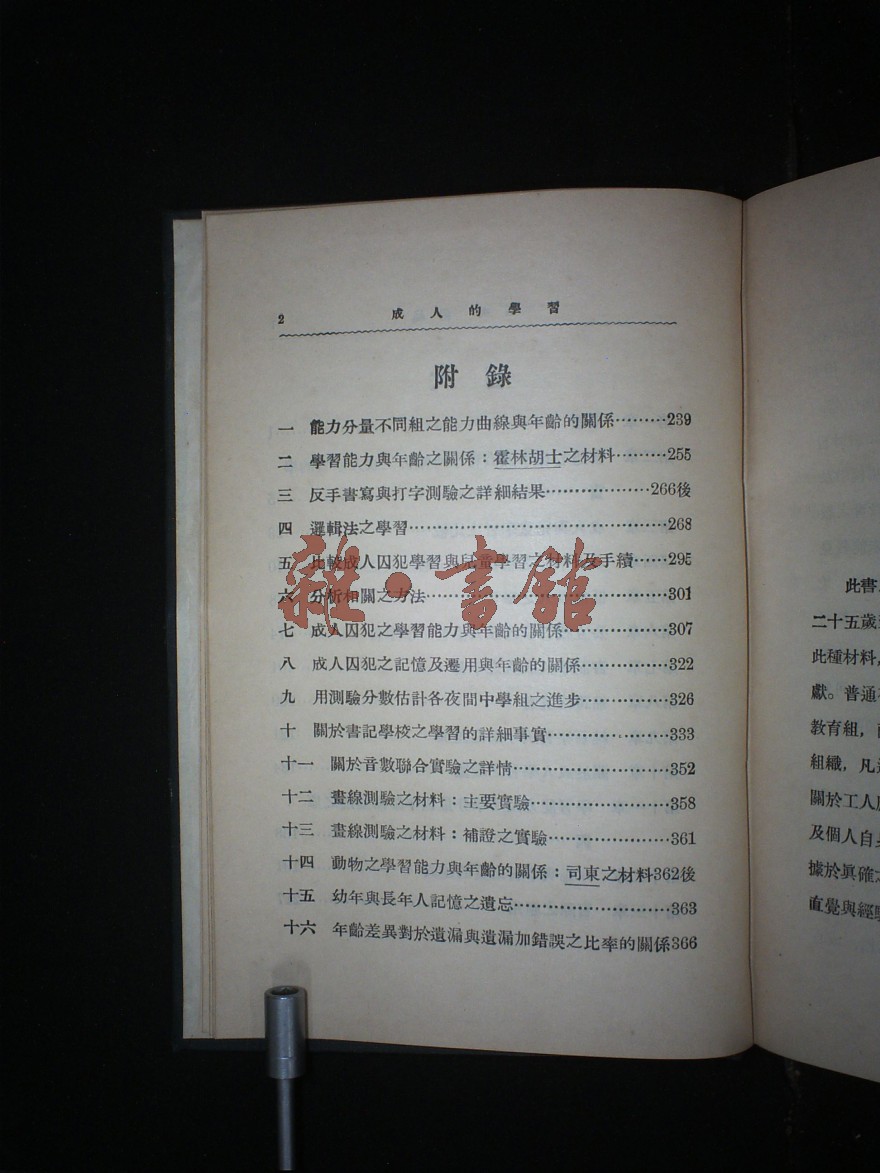 2 成人的學習
附錄
一 能力分量不同組之能力曲線與年齡的關係………239
二 學習能力與年齡之關係：霍林胡士之材料………255
三 反手書寫與打字測驗之詳細結果………………266後
四 邏輯法之學習……………………………………268
五 比較成人囚犯學習與兒童學習之材料及手續……295
六 分析相關之方法…………………………………301
七 成人囚犯之學習能力與年齡的關係……………307
八 成人囚犯之記憶及遷用與年齡的關係…………322
九 用測驗分數估計各夜間中學組之進步…………326
十 關於書記學校之學習的詳細事實………………333
十一 關於音數聯合實驗之詳情……………………352
十二 畫線測驗之材料：主要實驗…………………358
十三 畫線測驗之材料：補證之實驗………………361
十四 動物之學習能力與年齡的關係：司東之材料362後
十五 幼年與長年人記憶之遺忘……………………363
十六 年齡差異對於遺漏與遺漏加錯誤之比率的關係366
雜·書館
此書
二十五歲
此種材料，
獻。普通
教育組，
組織，凡
關於工人
及個人自
據於眞確
直覺與經